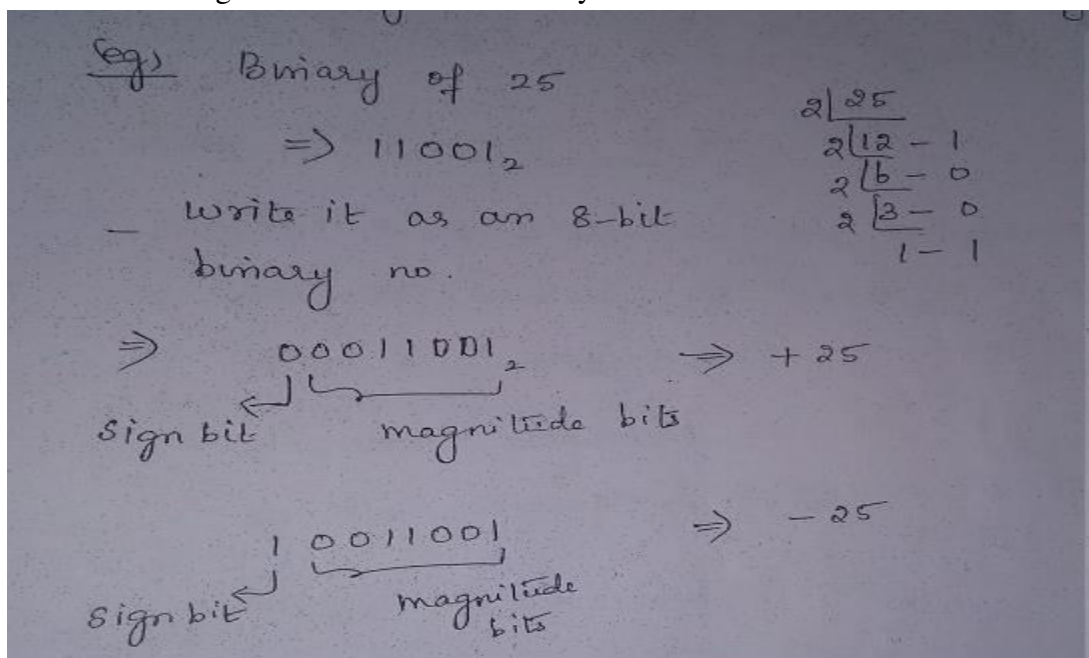 (eg) Binary of 25
⇒ 11001₂
2 | 25
2 | 12 - 1
2 | 6 - 0
2 | 3 - 0
1 - 1
— Write it as an 8-bit
binary no.
⇒ 00011001₂ ⇒ + 25
Sign bit magnitude bits
1 0011001 ⇒ - 25
Sign bit magnitude
bits